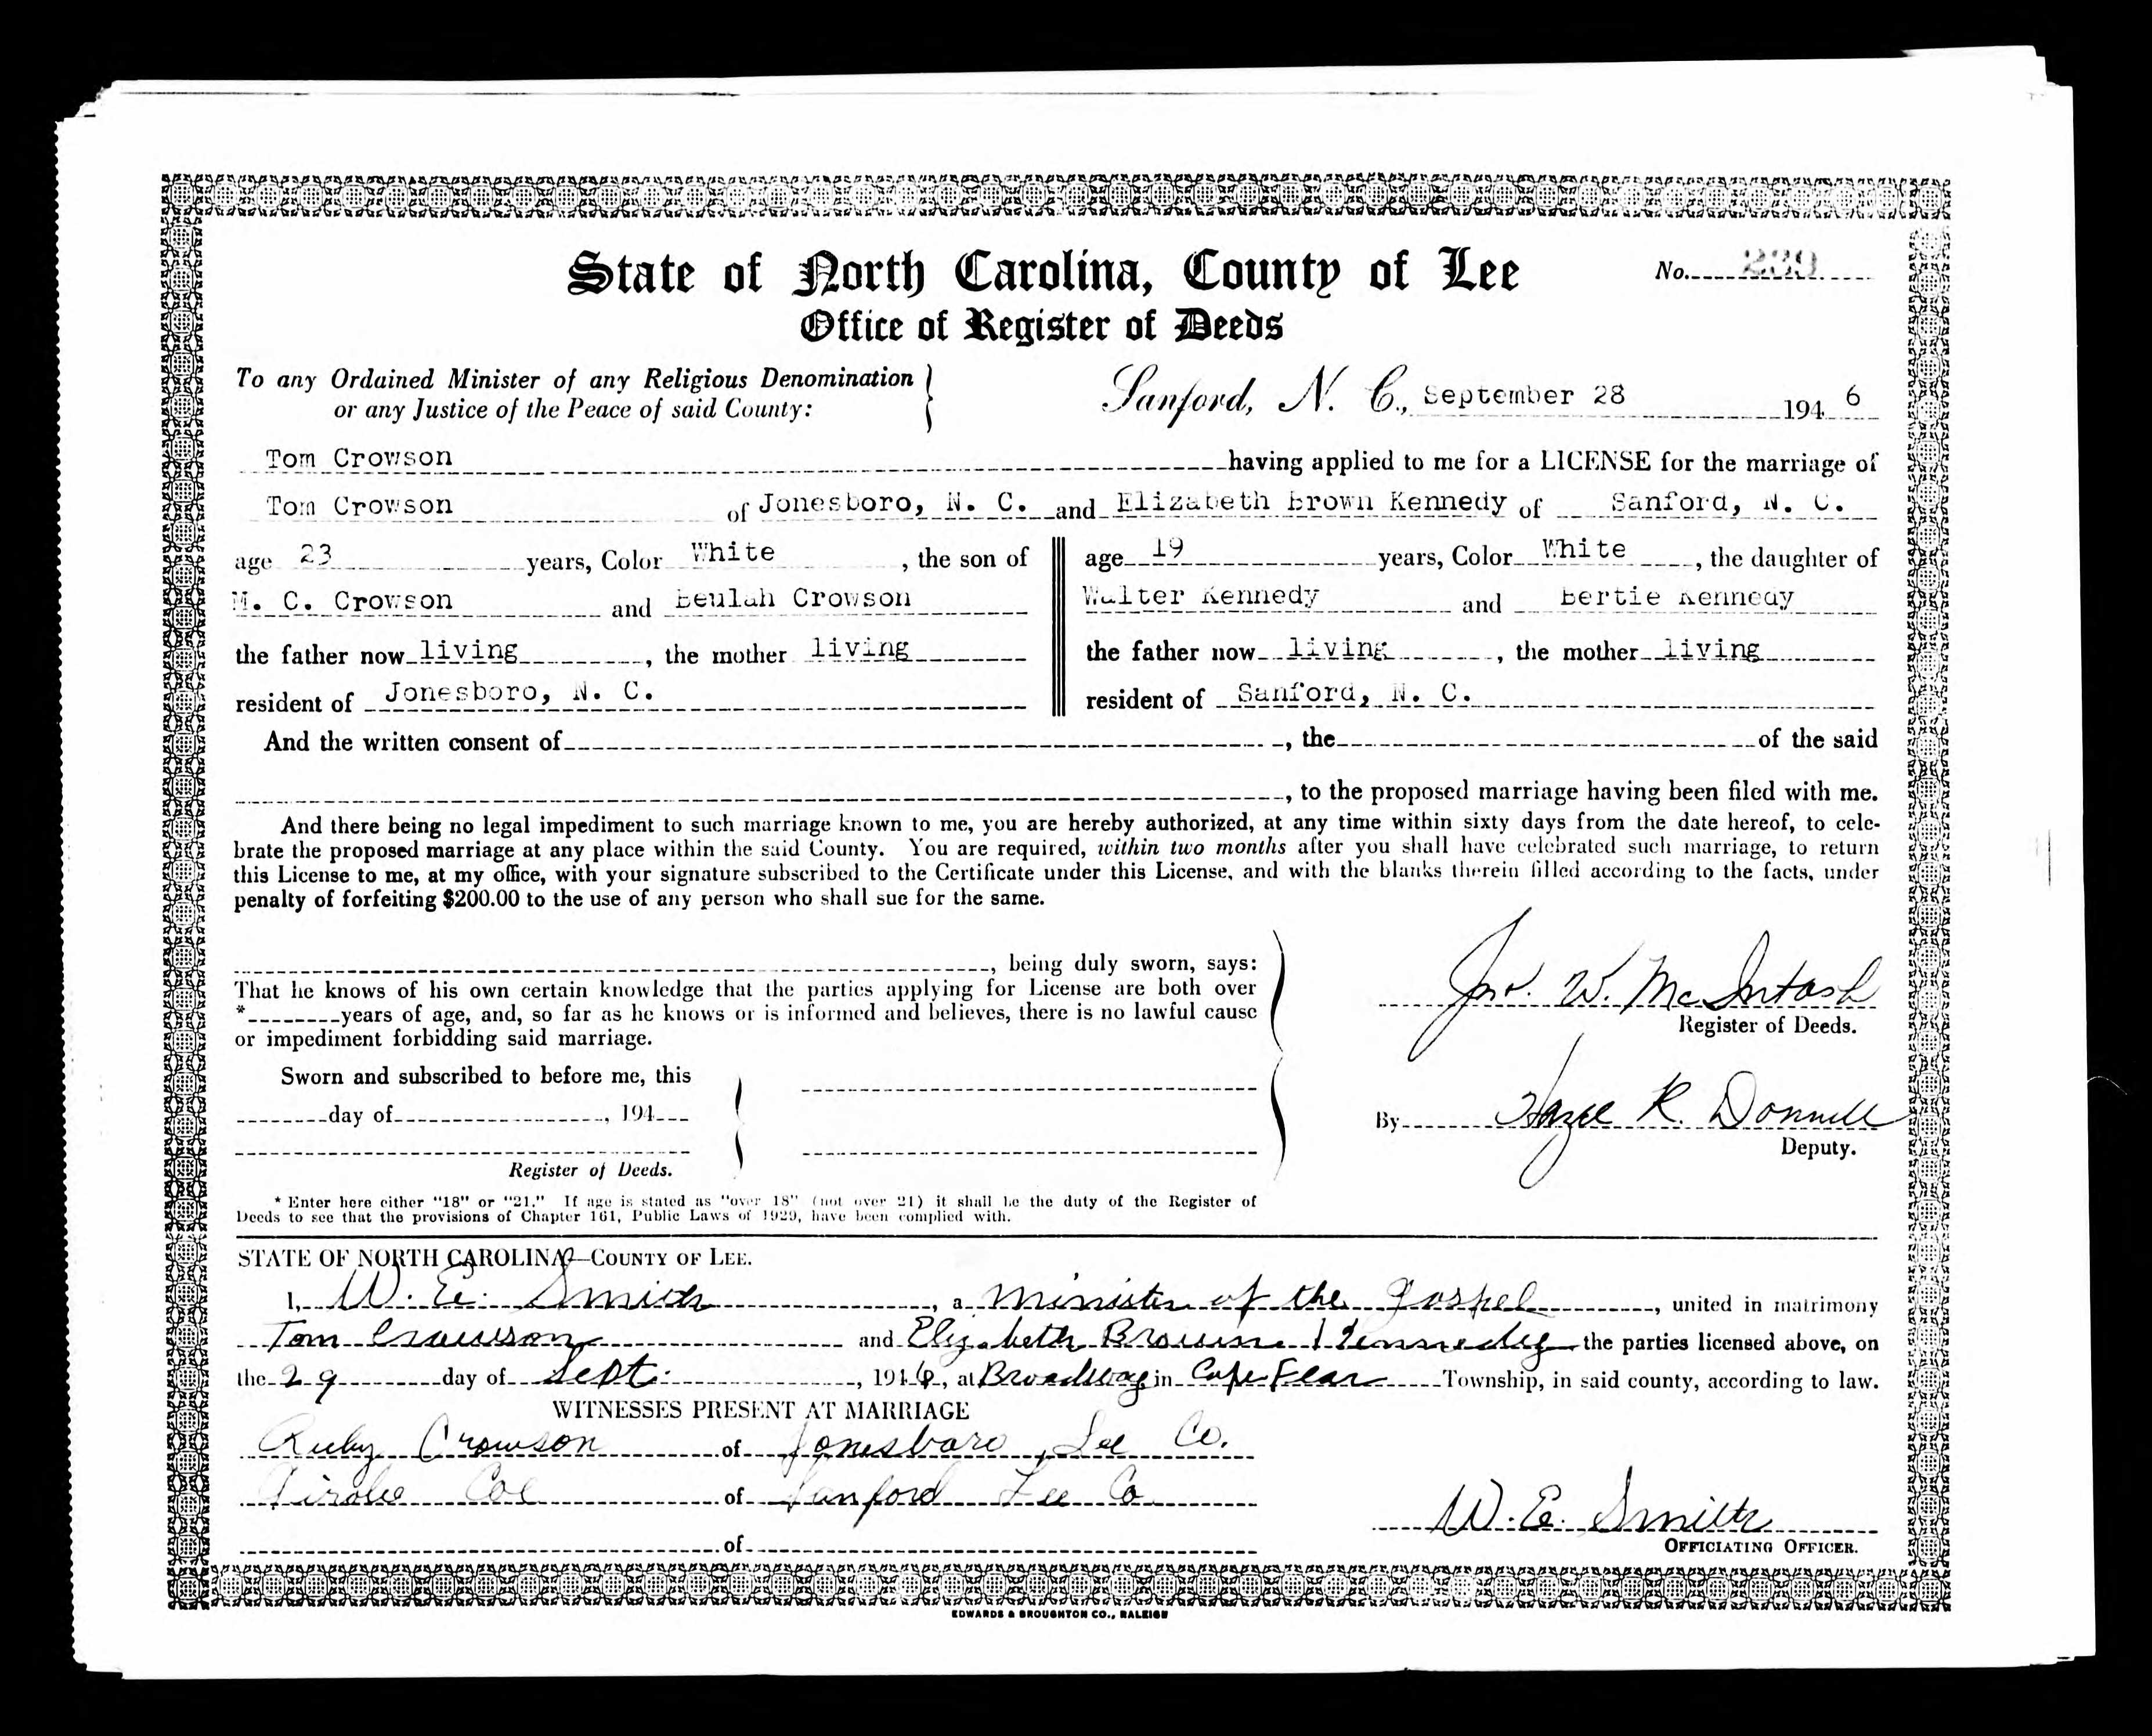 State of North Carolina, County of Lee
No.
Office of Register of Deeds
To any Ordained Minister of any Religious Denomination
or any Justice of the Peace of said County:
Sanford, N. C., September 28 194 6
Tom Crowson having applied to me for a LICENSE for the marriage of
Tom Crowson of Jonesboro, N. C. and Elizabeth Brown Kennedy of Sanford, N. C.
age 23 years, Color White, the son of
M. C. Crowson and Beulah Crowson
the father now living, the mother living
resident of Jonesboro, N. C.
age 19 years, Color White, the daughter of
Walter Kennedy and Bertie Kennedy
the father now living, the mother living
resident of Sanford, N. C.
And the written consent of , the of the said
, to the proposed marriage having been filed with me.
And there being no legal impediment to such marriage known to me, you are hereby authorized, at any time within sixty days from the date hereof, to cele-
brate the proposed marriage at any place within the said County. You are required, within two months after you shall have celebrated such marriage, to return
this License to me, at my office, with your signature subscribed to the Certificate under this License, and with the blanks therein filled according to the facts, under
penalty of forfeiting $200.00 to the use of any person who shall sue for the same.
, being duly sworn, says:
That he knows of his own certain knowledge that the parties applying for License are both over
* years of age, and, so far as he knows or is informed and believes, there is no lawful cause
or impediment forbidding said marriage.
Sworn and subscribed to before me, this
day of , 194
Register of Deeds.
Jno. W. McIntosh
Register of Deeds.
By Hazel R. Donnell
Deputy.
* Enter here either "18" or "21." If age is stated as "over 18" (not over 21) it shall be the duty of the Register of
Deeds to see that the provisions of Chapter 161, Public Laws of 1929, have been complied with.
STATE OF NORTH CAROLINA—COUNTY OF LEE.
I, W. E. Smith, a minister of the gospel, united in matrimony
Tom Crowson and Elizabeth Brown Kennedy the parties licensed above, on
the 29 day of Sept., 1946, at Broadway in Cape Fear Township, in said county, according to law.
WITNESSES PRESENT AT MARRIAGE
Ruby Crowson of Jonesboro, Lee Co.
Coe of Sanford Lee Co
of
W. E. Smith
OFFICIATING OFFICER.
EDWARDS & BROUGHTON CO., RALEIGH